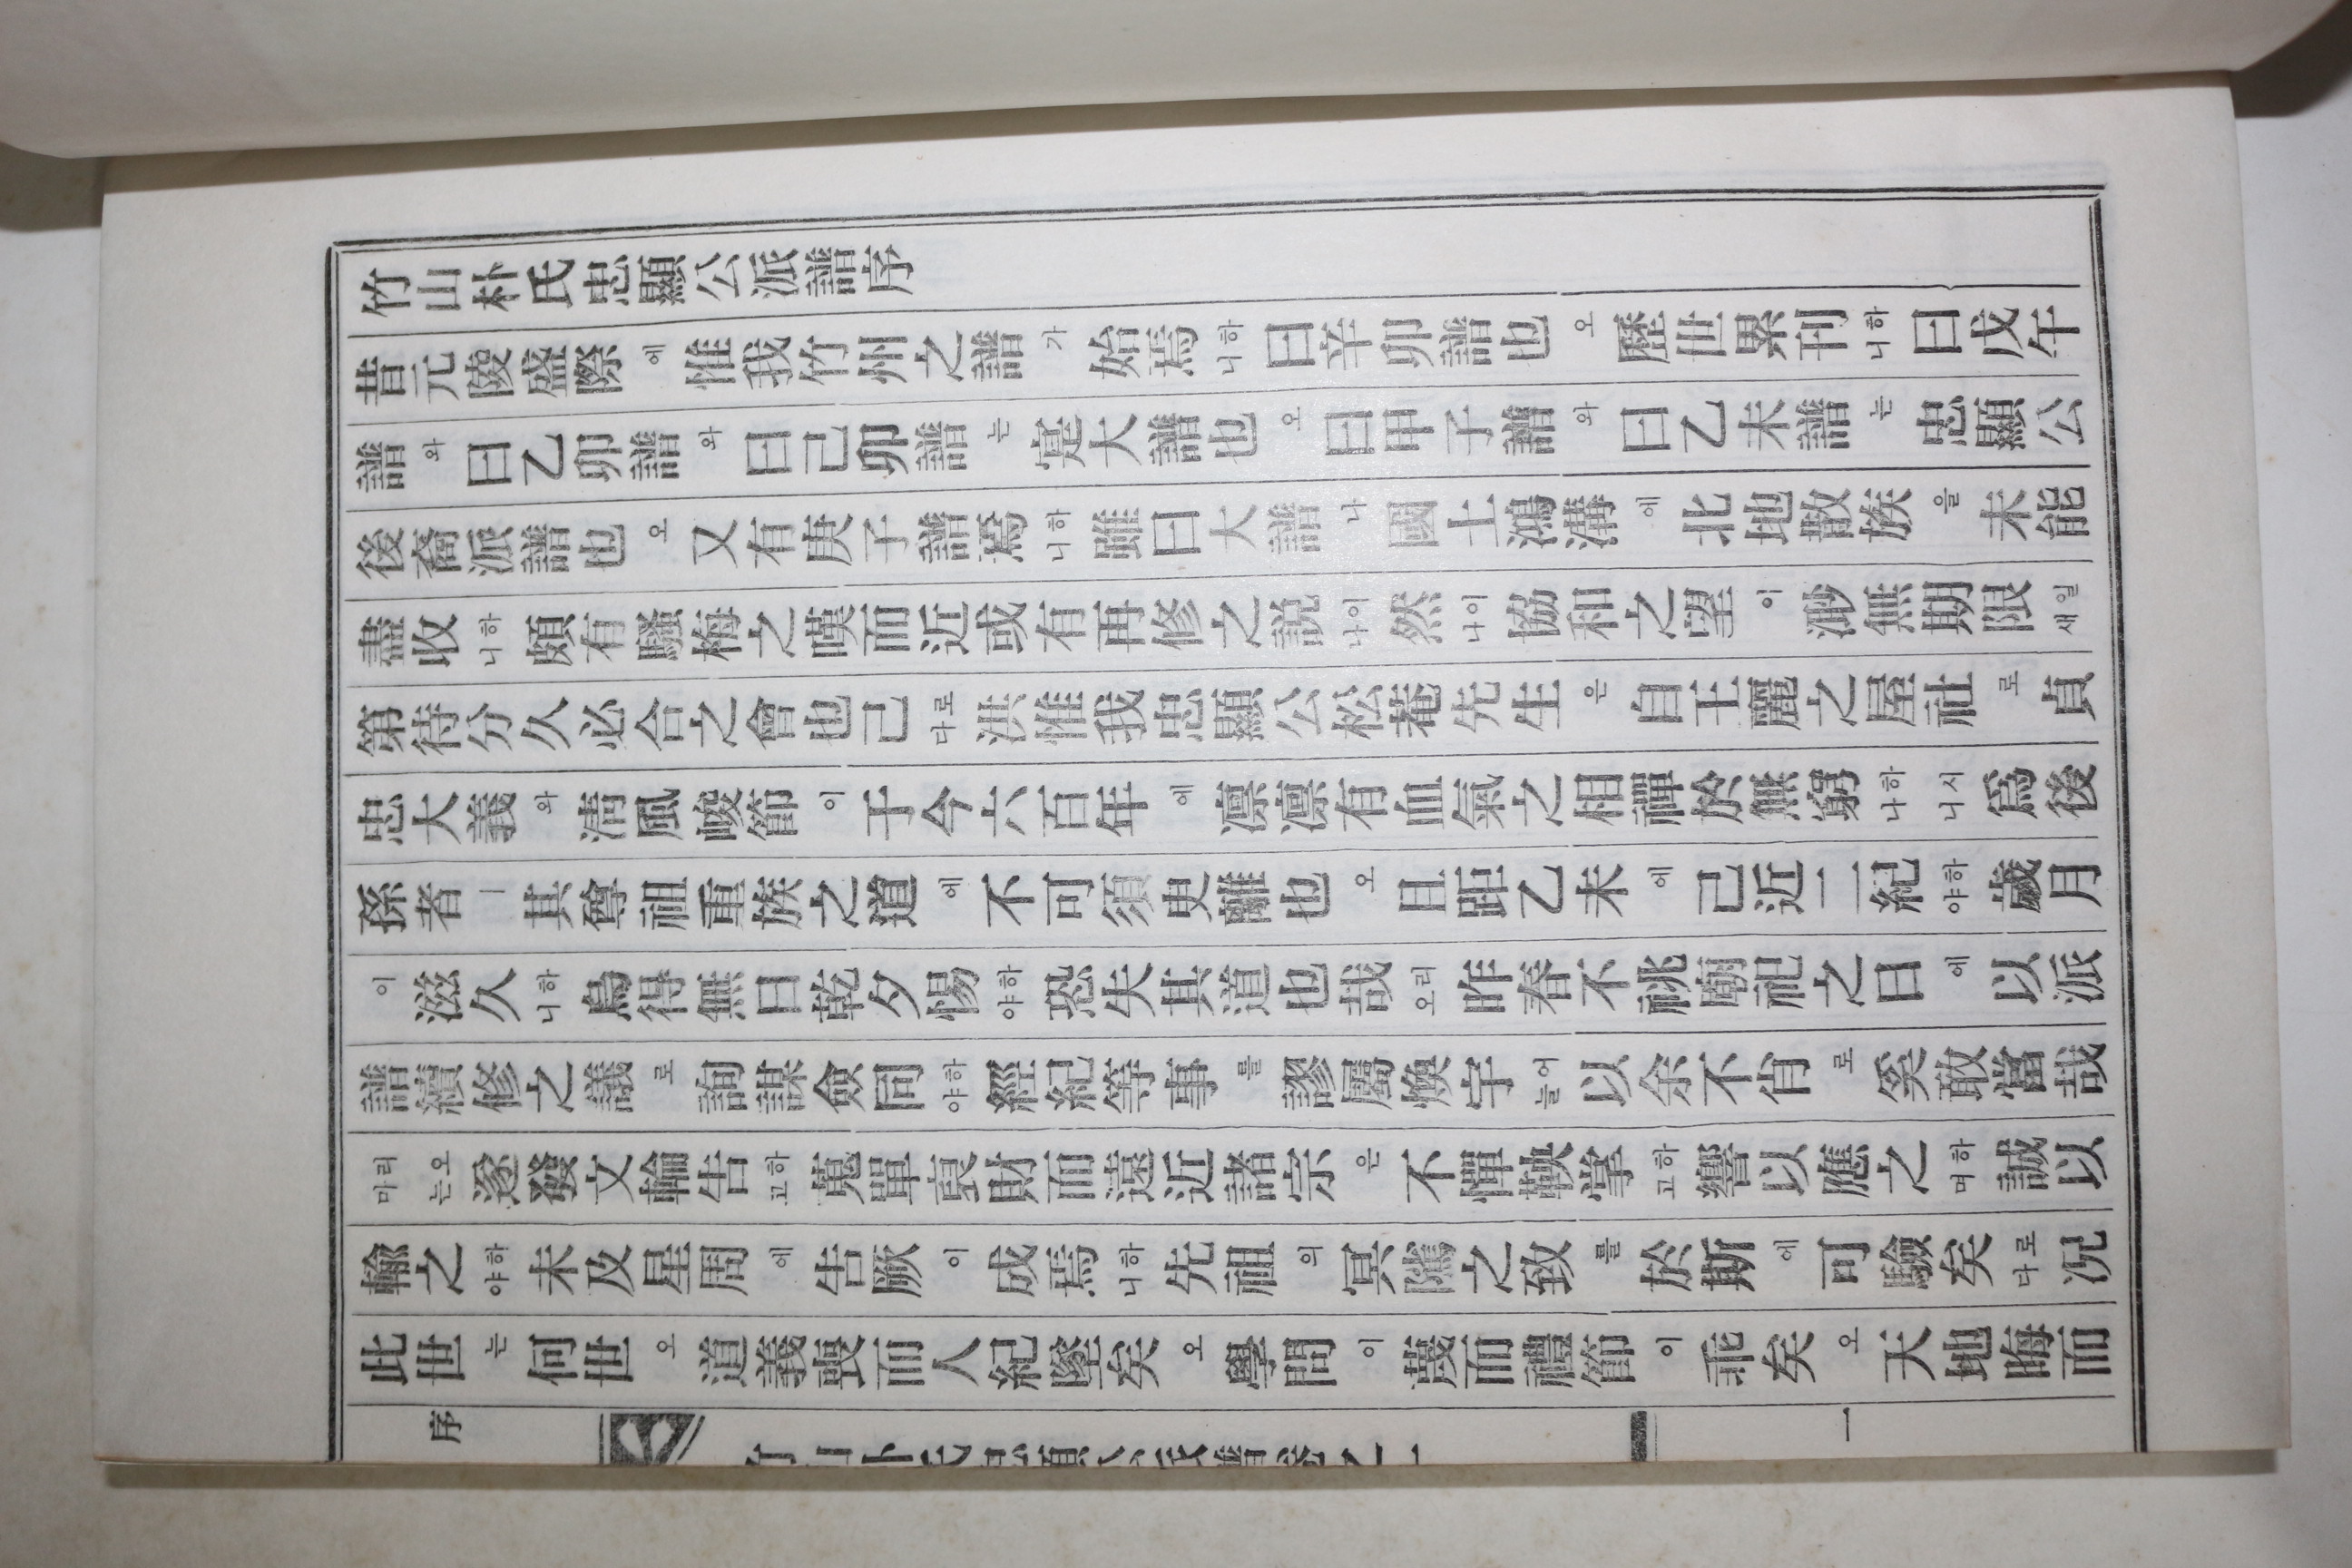 竹山朴氏忠顯公派譜序
昔元陵盛際에惟我竹州之譜가始焉하니曰辛卯譜也오歷世累刊하니曰戊午
譜와曰乙卯譜와曰己卯譜는寔大譜也오曰甲子譜와曰乙未譜는忠顯公
後裔派譜也오又有庚子譜焉하니雖曰大譜나國土鴻溝에北地散族을未能
盡收하니頗有騷梅之嘆而近或有再修之説이나然이나協和之望이渺無期限일새
第待分久必合之會也己로다洪惟我忠顯公松菴先生은自王麗之屋社로貞
忠大義와淸風峻節이于今六百年에凛凛有血氣之相禪於無窮하시나니爲後
孫者ㅣ其尊祖重族之道에不可須史離也오且距乙未에己近二紀하야歲月
이滋久하니烏得無日乾夕惕하야恐失其道也哉리오昨春不祧廟祀之日에以派
譜續修之議로詢謀僉同하야經紀等事를謬屬煥宇어늘以余不肖로奚敢當哉
리오마는遂發文輪告하고蒐單裒財而遠近諸宗은不憚鞅掌하고響以應之하며誠以
輸之하야未及星周에告厥이成焉하니先祖의冥隲之致를於斯에可驗矣로다況
此世는何世오道義喪而人紀墜矣오學問이蔑而禮節이乖矣오天地晦而
序
竹山朴氏忠顯公派譜卷之一
一